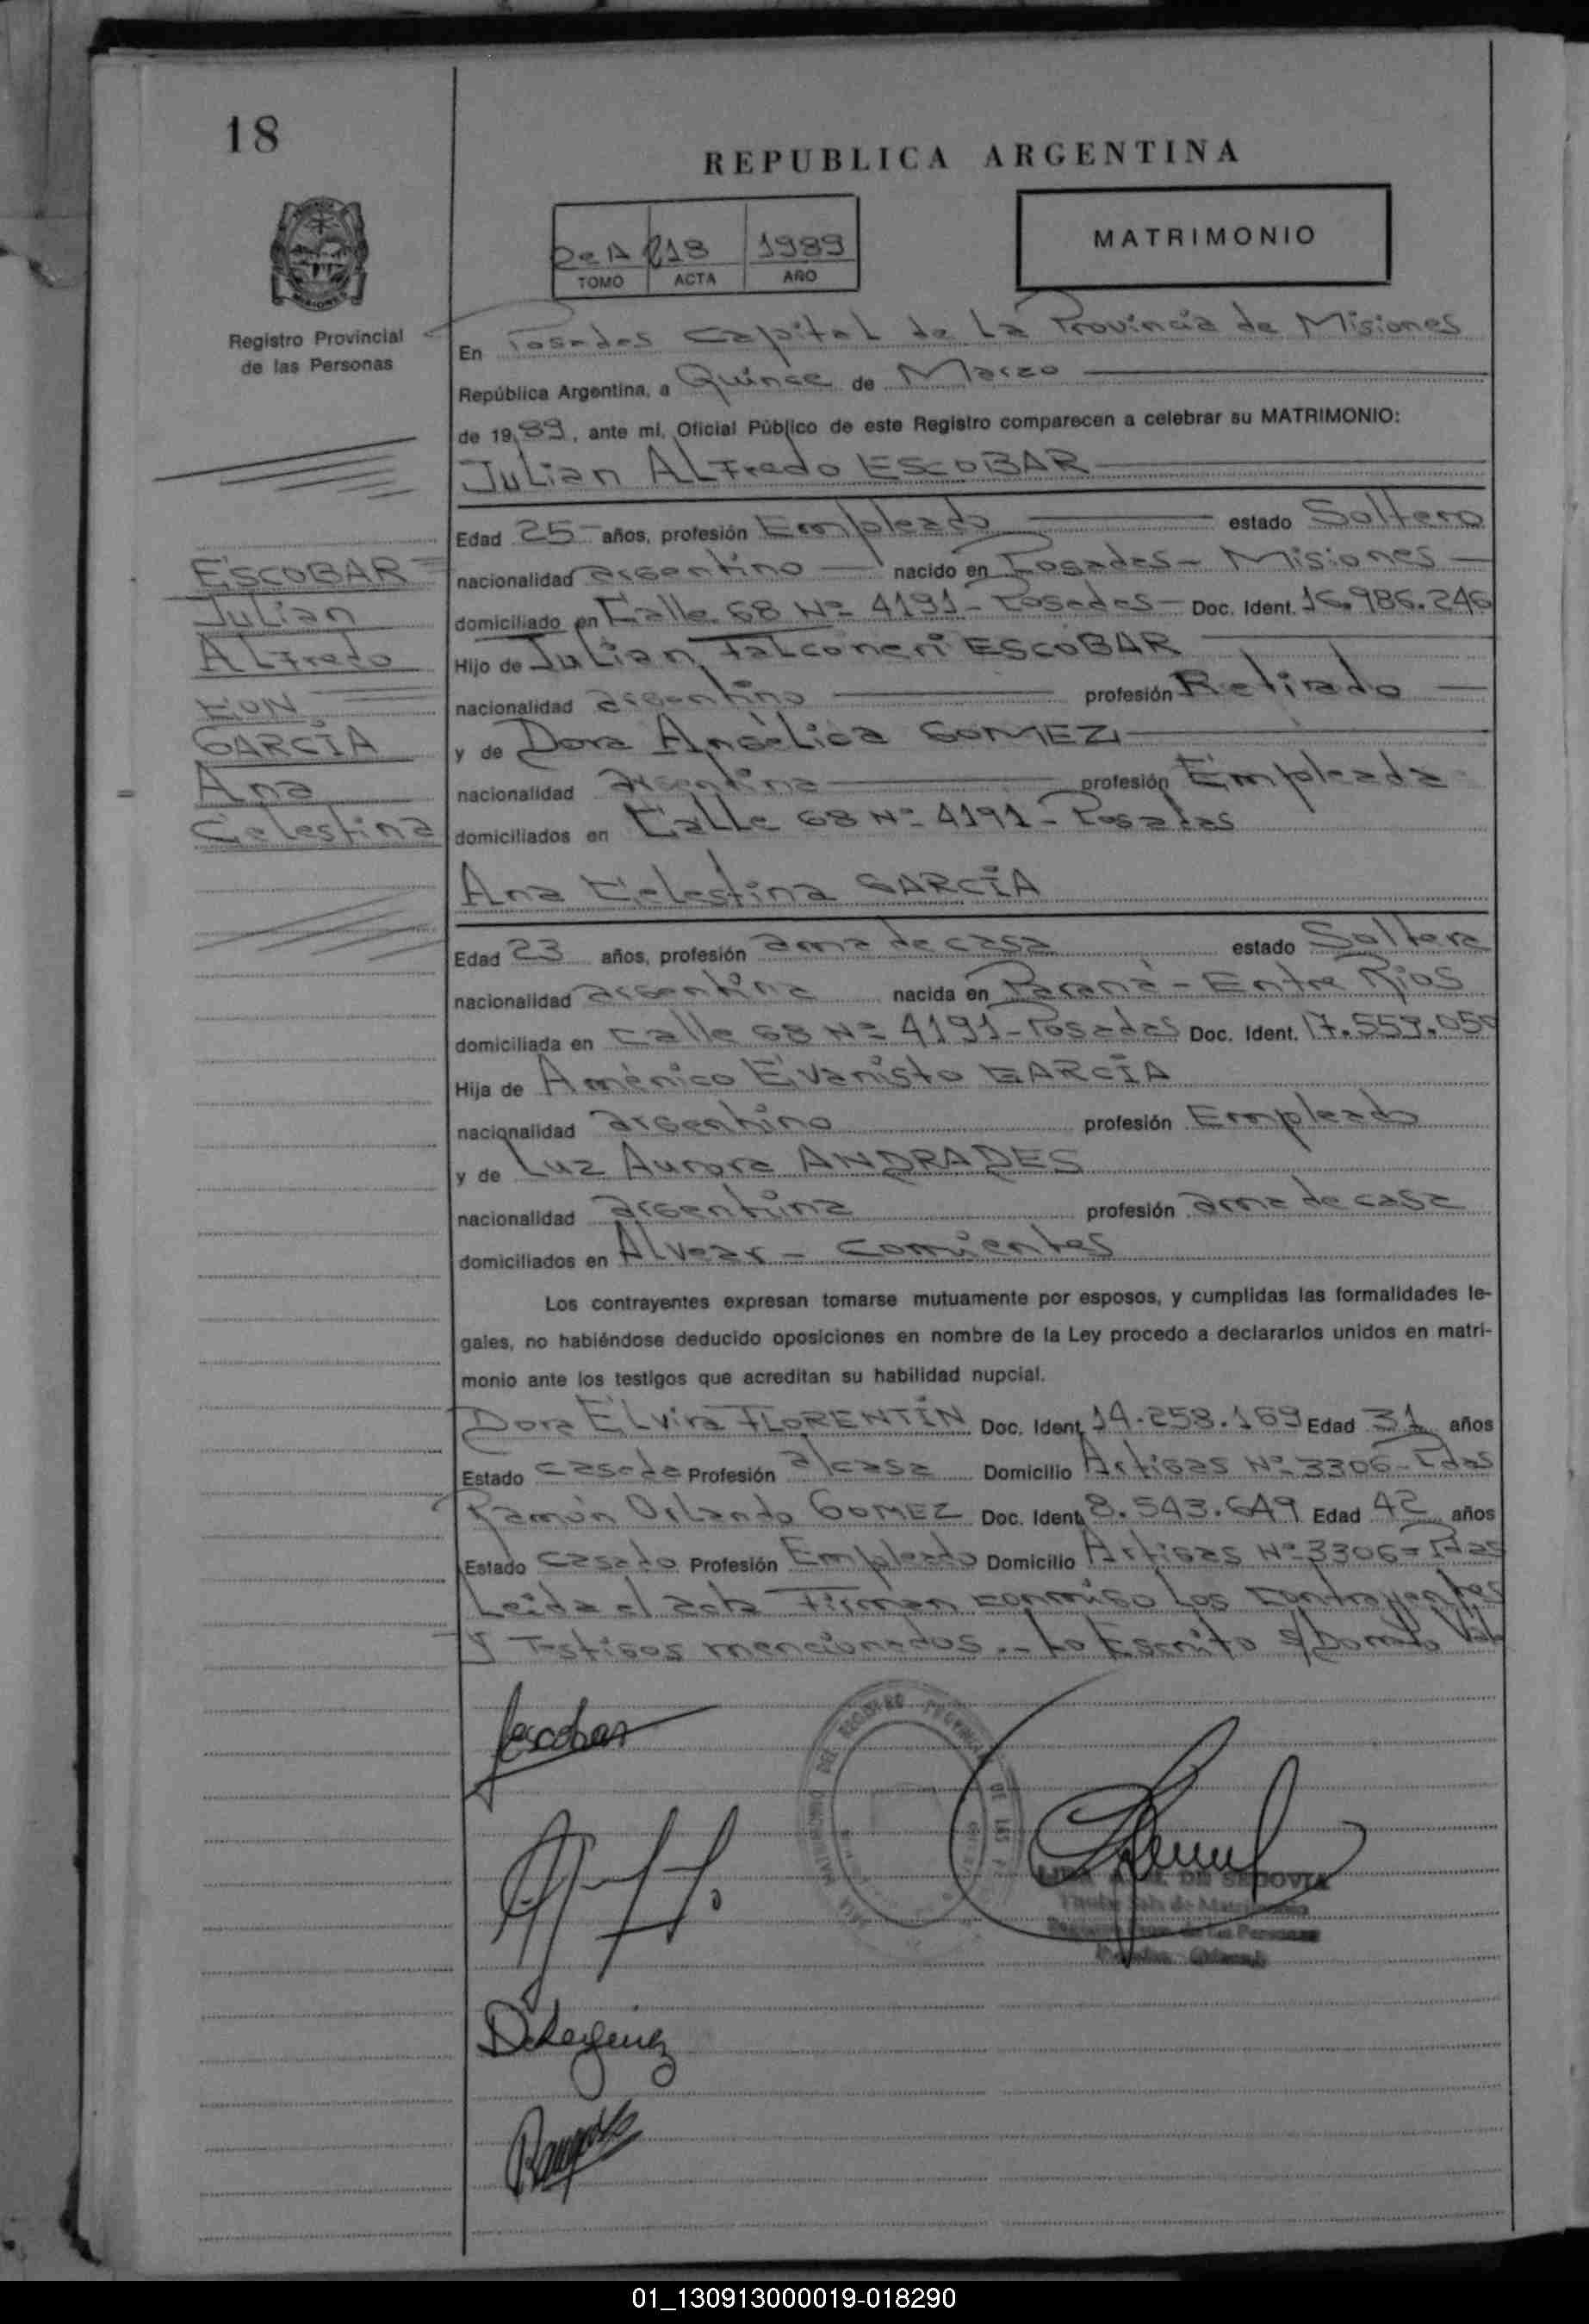 18
REPUBLICA ARGENTINA
2º A 218 1989
TOMO ACTA AÑO
MATRIMONIO
Registro Provincial
de las Personas
En Posadas Capital de La Provincia de Misiones
República Argentina, a Quince de Marzo
de 1989, ante mí, Oficial Público de este Registro comparecen a celebrar su MATRIMONIO:
Julian Alfredo ESCOBAR
Edad 25 años, profesión Empleado estado Soltero
nacionalidad argentino nacido en Posadas - Misiones
domiciliado en Calle 68 Nº 4191 - Posadas - Doc. Ident. 16.986.246
Hijo de Julian Falconeri ESCOBAR
nacionalidad argentino profesión Retirado
y de Dora Angélica GOMEZ
nacionalidad argentina profesión Empleada
domiciliados en Calle 68 Nº 4191 - Posadas
ESCOBAR
Julian
Alfredo
CON
GARCÍA
Ana
Celestina
Ana Celestina GARCÍA
Edad 23 años, profesión ama de casa estado Soltera
nacionalidad argentina nacida en Paraná - Entre Rios
domiciliada en Calle 68 Nº 4191 - Posadas Doc. Ident. 17.559.050
Hija de Américo Evaristo GARCÍA
nacionalidad argentino profesión Empleado
y de Luz Aurora ANDRADES
nacionalidad argentina profesión ama de casa
domiciliados en Alvear - Corrientes
Los contrayentes expresan tomarse mutuamente por esposos, y cumplidas las formalidades le-
gales, no habiéndose deducido oposiciones en nombre de la Ley procedo a declararlos unidos en matri-
monio ante los testigos que acreditan su habilidad nupcial.
Dora Elvira FLORENTÍN Doc. Ident. 14.258.169 Edad 31 años
Estado casada Profesión a/casa Domicilio Artigas Nº 3306 - Pdas
Ramón Orlando GOMEZ Doc. Ident. 8.543.649 Edad 42 años
Estado Casado Profesión Empleado Domicilio Artigas Nº 3306 - Pdas
Leida el acta Firman conmigo Los contrayentes
y Testigos mencionados.- Lo Escrito s/Borrado Vale
Escobar
DEL REGISTRO PROVINCIAL DE LAS
DE SEGOVIA
01_130913000019-018290